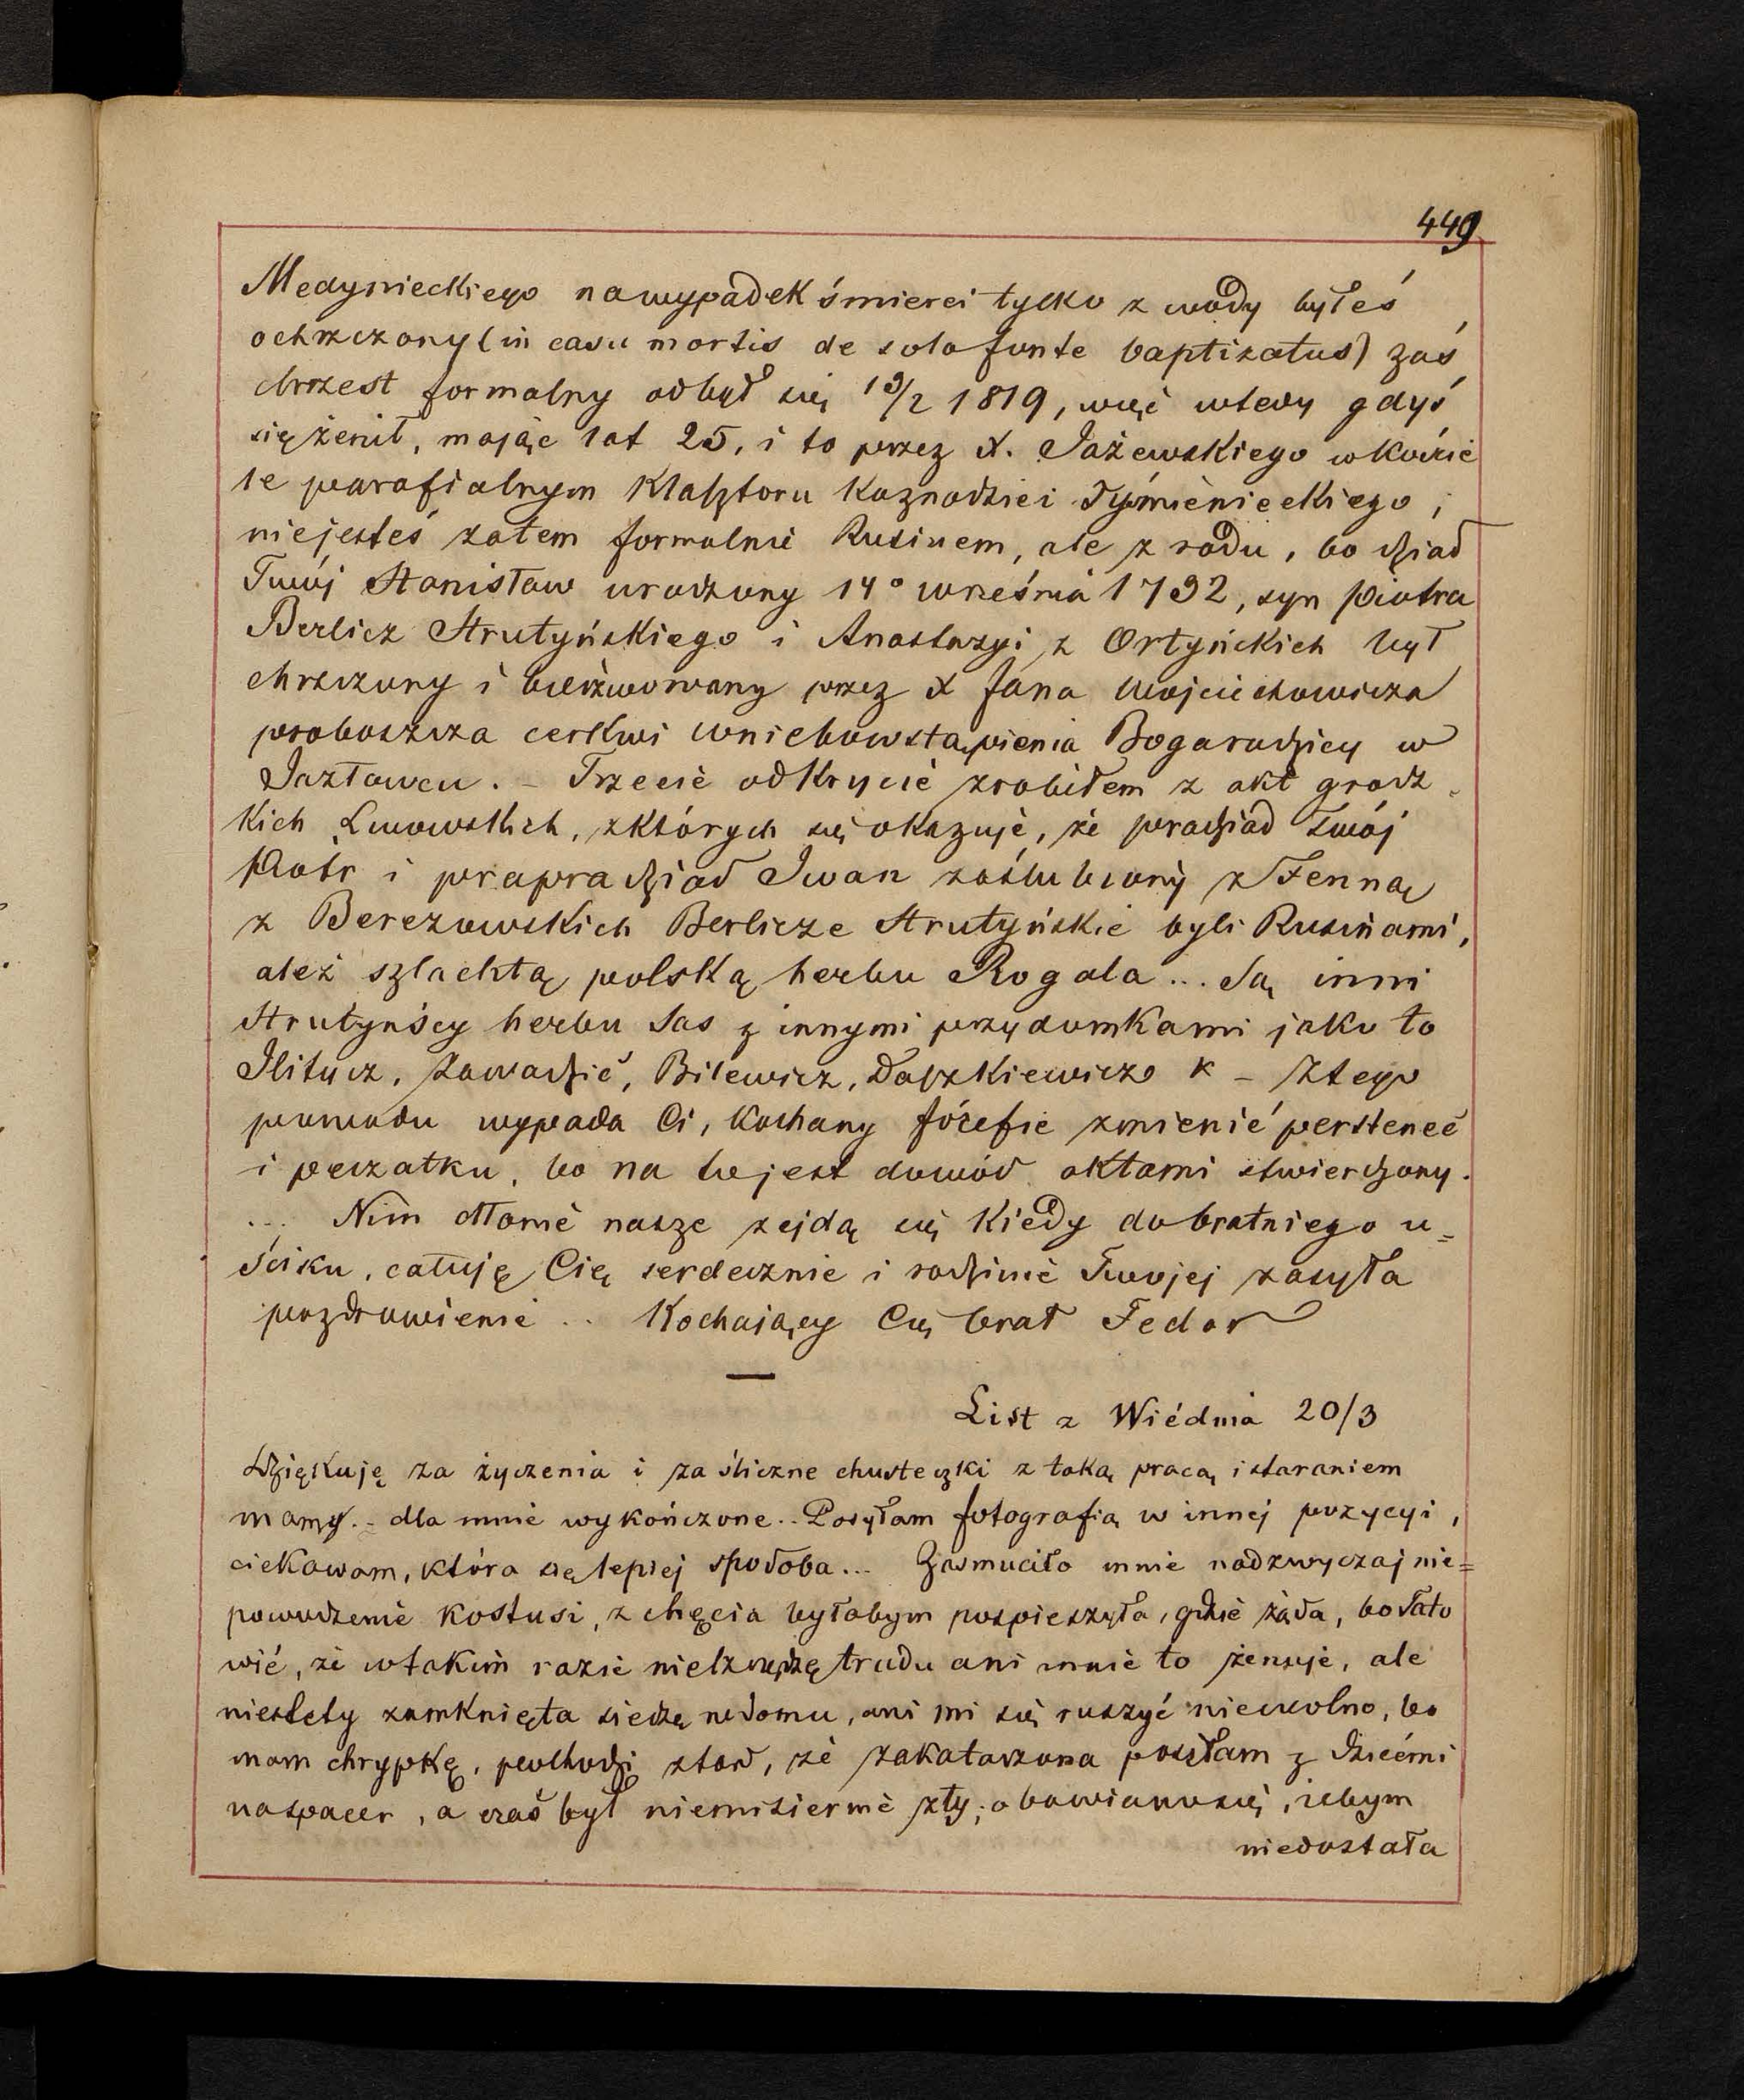 449
Medynieckiego na wypadek śmierci tylko z wody byłeś
ochrzczony (in casu mortis de solo fonte baptizatus) zaś
chrzest formalny odbył się 19/2 1819, więc wtedy gdyś
się żenił, mając lat 25, i to przez X. Jażewskiego w koście
le parafialnym Klasztoru Kaznodziei Tyśmienieckiego,
niejesteś zatem formalnie Rusinem, ale z rodu, bo dziad
Twój Stanisław urodzony 14° września 1792, syn Piotra
Berlicz Strutyńskiego i Anastazyi z Ortyńskich był
chrzczony i bierzmowany przez X Jana Wojciechowicza
proboszcza cerkwi Wniebowstąpienia Bogarodzicy w
Jazłowcu. – Trzecie odkrycie zrobiłem z akt grodz
kich Lwowskich, z których się okazuje, że pradziad Twój
Piotr i prapradziad Iwan zaślubiony z Fenną
z Berezowskich Berlicze Strutyńskie byli Rusinami,
ależ szlachtą polską herbu Rogala ... Są inni
Strutyńscy herbu Sas z innymi przydomkami jako to
Ilitycz, Zawadzić, Bilewicz, Daszkiewicz – Z tego
powodu wypada Ci, Kochany Józefie zmienić perstenec
i peczatku, bo na to jest dowód aktami stwierdzony.
... Nim dłonie nasze zejdą się kiedy do bratniego u=
ścisku, całuję Cię serdecznie i rodzinie Twojej zasyła
pozdrowienie .. Kochający Cię brat Fedor
—
List z Wiédnia 20/3
Dziękuję za życzenia i za śliczne chusteczki z taką pracą i staraniem
mamy – dla mnie wykończone .. Posyłam fotografią w innej pozycyi,
ciekawam, która się lepiej spodoba ... Zasmuciło mnie nadzwyczaj nie=
powodzenie Kostusi, z chęcia byłabym pospieszyła, gdzie żąda, bo Tato
wié, że w takim razie nie trudu ani mnie to żenuje, ale
niestety zamknięta siedzę w domu, ani mi się ruszyć nie wolno, bo
mam chrypkę, pochodzi ztąd, że zakatarzona poszłam z dziećmi
na spacer, a czas był niemisiernie zły; obawiano się, żebym
niedostała